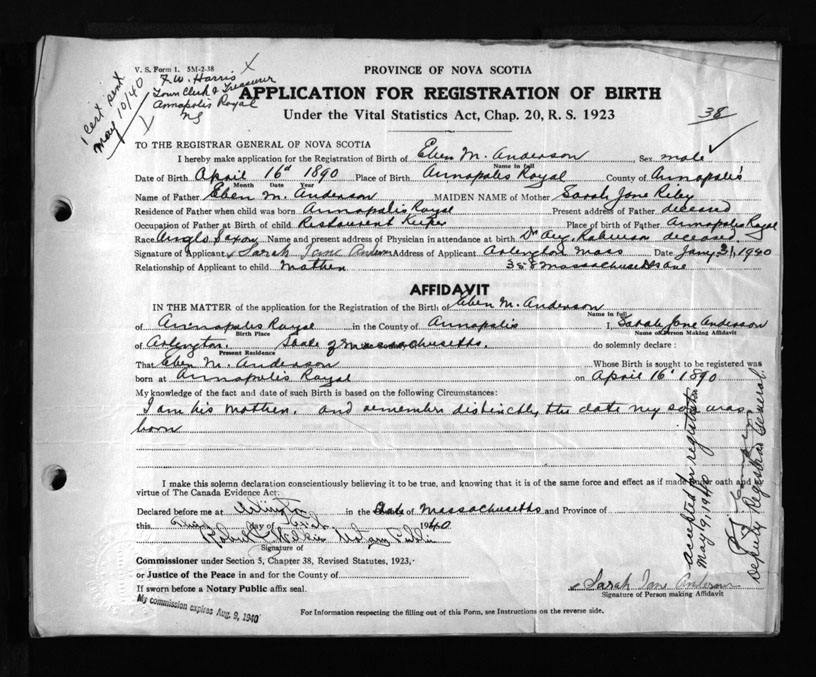 V. S. Form 1. 5M-2-38
F. W. Harris
Town Clerk & Treasurer
Annapolis Royal
NS
cert sent
May 10/40
PROVINCE OF NOVA SCOTIA
APPLICATION FOR REGISTRATION OF BIRTH
Under the Vital Statistics Act, Chap. 20, R. S. 1923
38
TO THE REGISTRAR GENERAL OF NOVA SCOTIA
I hereby make application for the Registration of Birth of Eben M. Anderson Sex male
Name in full
Date of Birth April 16th 1890 Place of Birth Annapolis Royal County of Annapolis
Month Date Year
Name of Father Eben M. Anderson MAIDEN NAME of Mother Sarah Jane Riley
Residence of Father when child was born Annapolis Royal Present address of Father deceased
Occupation of Father at Birth of child Restaurant Keeper Place of birth of Father Annapolis Royal
Race Anglo Saxon Name and present address of Physician in attendance at birth Dr Aug. Robinson deceased
Signature of Applicant Sarah Jane Anderson Address of Applicant Arlington Mass Date Jany 31, 1940
Relationship of Applicant to child Mother 388 Massachusetts Ave
AFFIDAVIT
IN THE MATTER of the application for the Registration of the Birth of Eben M. Anderson
Name in full
of Annapolis Royal in the County of Annapolis I, Sarah Jane Anderson
Birth Place Name of Person Making Affidavit
of Arlington. State of Massachusetts. do solemnly declare :
Present Residence
That Eben M. Anderson Whose Birth is sought to be registered was
born at Annapolis Royal on April 16th 1890
My knowledge of the fact and date of such Birth is based on the following Circumstances:
I am his Mother. and remember distinctly the date my son was
born
I make this solemn declaration conscientiously believing it to be true, and knowing that it is of the same force and effect as if made under oath and by
virtue of The Canada Evidence Act:
Declared before me at Arlington in the State of Massachusetts and Province of
this day of 1940
Notary Public
Signature of
Commissioner under Section 5, Chapter 38, Revised Statutes, 1923,
or Justice of the Peace in and for the County of
If sworn before a Notary Public affix seal.
My commission expires Aug. 9, 1940
Sarah Jane Anderson
Signature of Person making Affidavit
For Information respecting the filling out of this Form, see Instructions on the reverse side.
accepted for registration
May 9, 1940
Deputy Registrar General